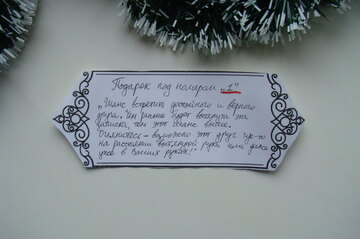 Подарок под номером „1"
„Шанс встретить достойного и верного
друга. Чем раньше будет вскрыта эта
записка, тем этот шанс выше.
Оглянитесь – возможно этот друг где-то
на расстоянии вытянутой руки или даже
уже в Ваших руках!"